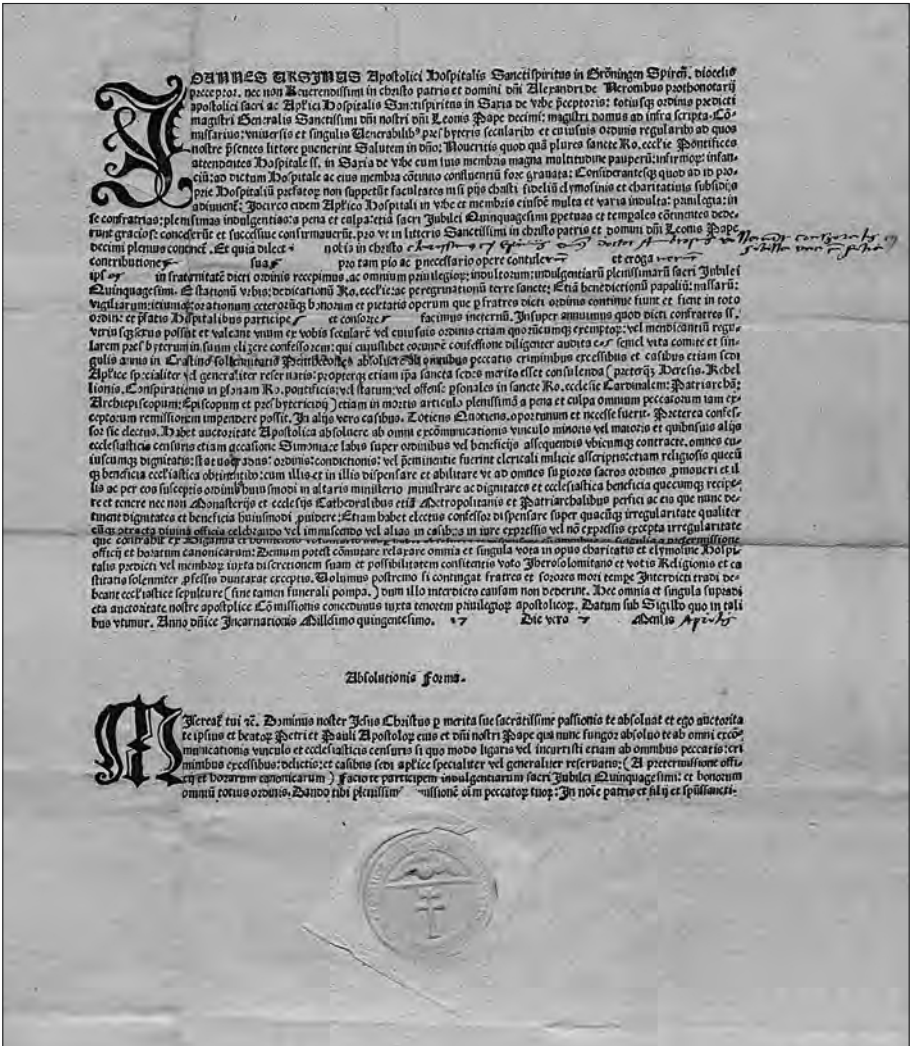 JOANNES URSINUS Apostolici Hospitalis Sanctispiritus in Gröningen Spireñ. diocesis
preceptor. nec non Reuerendissimi in christo patris et domini dñi Alexandri de Neronibus prothonotarij
apostolici sacri ac Aplici Hospitalis Sanctispiritus in Saxia de vrbe p̄ceptoris: totiusq̧ ordinis predicti
magistri Generalis Sanctissimi dñi nostri dñi Leonis Pape decimi: magistri domus ad infra scripta. Cō-
missarius: vniuersis et singulis Venerabilibꝰ presbyteris secularibꝰ et cuiusuis ordinis regularibꝰ ad quos
nostre p̄sentes littere puenerint Salutem in dño: Noueritis quod quā plures sancte Ro. ecclie Pontifices
attendentes Hospitale ss. in Saxia de vrbe cum suis membris magna multitudine pauperū: infirmoꝝ: infan-
ciū: ad dictum Hospitale ac eius membra cōtinuo confluentiū fore grauata: Considerantesq̧ quod ad id pro-
prie Hospitaliū prefatoꝝ non suppetūt facultates nisi pijs christi fideliū elymosinis et charitatiuis subsidijs
adiuuent᷑: Idcirco eidem Aplico Hospitali in vrbe et membris eiusdē multa et varia indulta: priuilegia: in
se confratrias: plenissimas indulgentias: a pena et culpa: etiā sacri Jubilei Quinquagesimi ppetuas et tempales cōtinentes dede-
runt gracioſe concesserūt et successiue confirmauerūt. pro vt in litteris Sanctissimi in christo patris et domini dñi Leonis Pape
decimi plenius continet᷑. Et quia dilect nobis in christo
contributione sua pro tam pio ac pnecessario opere contule et eroga
ips in fraternitatē dicti ordinis recepimus. ac omnium priuilegioꝝ: indultorum: indulgentiarū plenissimarū sacri Jubilei
Quinquagesimi. Stationū vrbis: dedicationū Ro. ecclie: ac peregrinationū terre sancte: Etiā benedictionū papaliū: missarū:
vigiliarum: ieiuniaꝝ: orationum ceterorūq̧ bonorum et pietatis operum que p fratres dicti ordinis continue fiunt et fient in toto
ordine et p̄fatis Hospitalibus participe et consorte facimus in eternū. Insuper annuimus quod dicti confratres ss.
vtriusq̧ sexus possint et valeant vnum ex vobis secularē vel cuiusuis ordinis etiam quorūcumq̧ exemptoꝝ: vel mendicantiū regu-
larem presbyterum in suum eligere confessorem: qui cuiuslibet eorundē confessione diligenter audita eos semel vita comite et sin-
gulis annis in Crastino sollennitatis Penthecostes absoluere ab omnibus peccatis criminibus excessibus et casibus etiam sedi
Aplice specialiter vel generaliter reseruatis: propterq̧ etiam ipa sancta sedes merito esset consulenda (preterq̧ Heresis. Rebel
lionis. Conspirationis in psonam Ro. pontificis: vel statum: vel offense psonales in sancte Ro. ecclesie Cardinalem: Patriarchā:
Archiepiscopum: Episcopum et presbytericidij) etiam in mortis articulo plenissimā a pena et culpa omnium peccatorum iam ex-
ceptorum remissionem impendere possit. In alijs vero casibus. Totiens Quotiens. oportunum et necesse fuerit. Preterea confes-
sor sic electus. Habet auctoritate Apostolica absoluere ab omni excōmunicationis vinculo minoris vel maioris et quibusuis alijs
ecclesiasticis censuris etiam occasione Simoniace labis super ordinibus vel beneficijs assequendis vbicumq̧ contracte. omnes cu-
iuscumq̧ dignitatis: status: gradus: ordinis: condictionis: vel preminentie fuerint clericali milicie ascriptis: etiam religiosis quecū
q̧ beneficia ecclesiastica obtinentibꝰ: cum illis et in illis dispensare et abilitare vt ad omnes supiores sacros ordines pmoueri et il
lis ac per eos susceptis ordinibꝰ huiusmodi in altaris ministerio ministrare ac dignitates et ecclesiastica beneficia quecumq̧ recipe-
re et tenere nec non Monasterijs et ecclesijs Cathedralibus etiā Metropolitanis et Patriarchalibus perfici ac eis que nunc ob-
tinent dignitates et beneficia huiusmodi puidere: Etiam habet electus confessor dispensare super quacūq̧ irregularitate qualiter
cūq̧ contracta diuina officia celebrando vel immiscendo vel alias in casibus in iure expressis vel nō expressis excepta irregularitate
que contrahit᷑ ex Bigamia et
officij et horarum canonicarum: Demum potest cōmutare relaxare omnia et singula vota in opus charitatis et elymosine Hospi-
talis predicti vel membroꝝ iuxta discretionem suam et possibilitatem confitentis voto Jherosolomitano et votis Religionis et ca
stitatis solenniter pfessis duntaxat exceptis. Volumus postremo si contingat fratres et sorores mori tempe Interdicti tradi de-
beant ecclesiastice sepulture (sine tamen funerali pompa.) dum illo interdicto causam non dederint. Hec omnia et singula supradi
cta auctoritate nostre apostolice Cōmissionis concedimus iuxta tenorem priuilegioꝝ apostolicoꝝ. Datum sub Sigillo quo in tali
bus vtimur. Anno dñice Incarnationis Millesimo quingentesimo. 17 Die vero 7 Mensis Aprilis
Absolutionis Forma.
Misereat᷑ tui ꝛc̄. Dominus noster Jesus Christus p merita sue sacratissime passionis te absoluat et ego auctorita
te ipsius et beatoꝝ Petri et Pauli Apostoloꝝ eius et dñi nostri Pape qua nunc fungor absoluo te ab omni excō
municationis vinculo et ecclesiasticis censuris si quo modo ligaris vel incurristi etiam ab omnibus peccatis: cri
minibus excessibus: delictis: et casibus sedi aplice specialiter vel generaliter reseruatis: (A pretermissione offi-
cij et horarum canonicarum) Facio te participem indulgentiarum sacri Jubilei Quinquagesimi: et bonorum
omniū totius ordinis. Dando tibi plenissim missionē oim peccatoꝝ tuoꝝ: In noīe patris et filij et spūssancti.